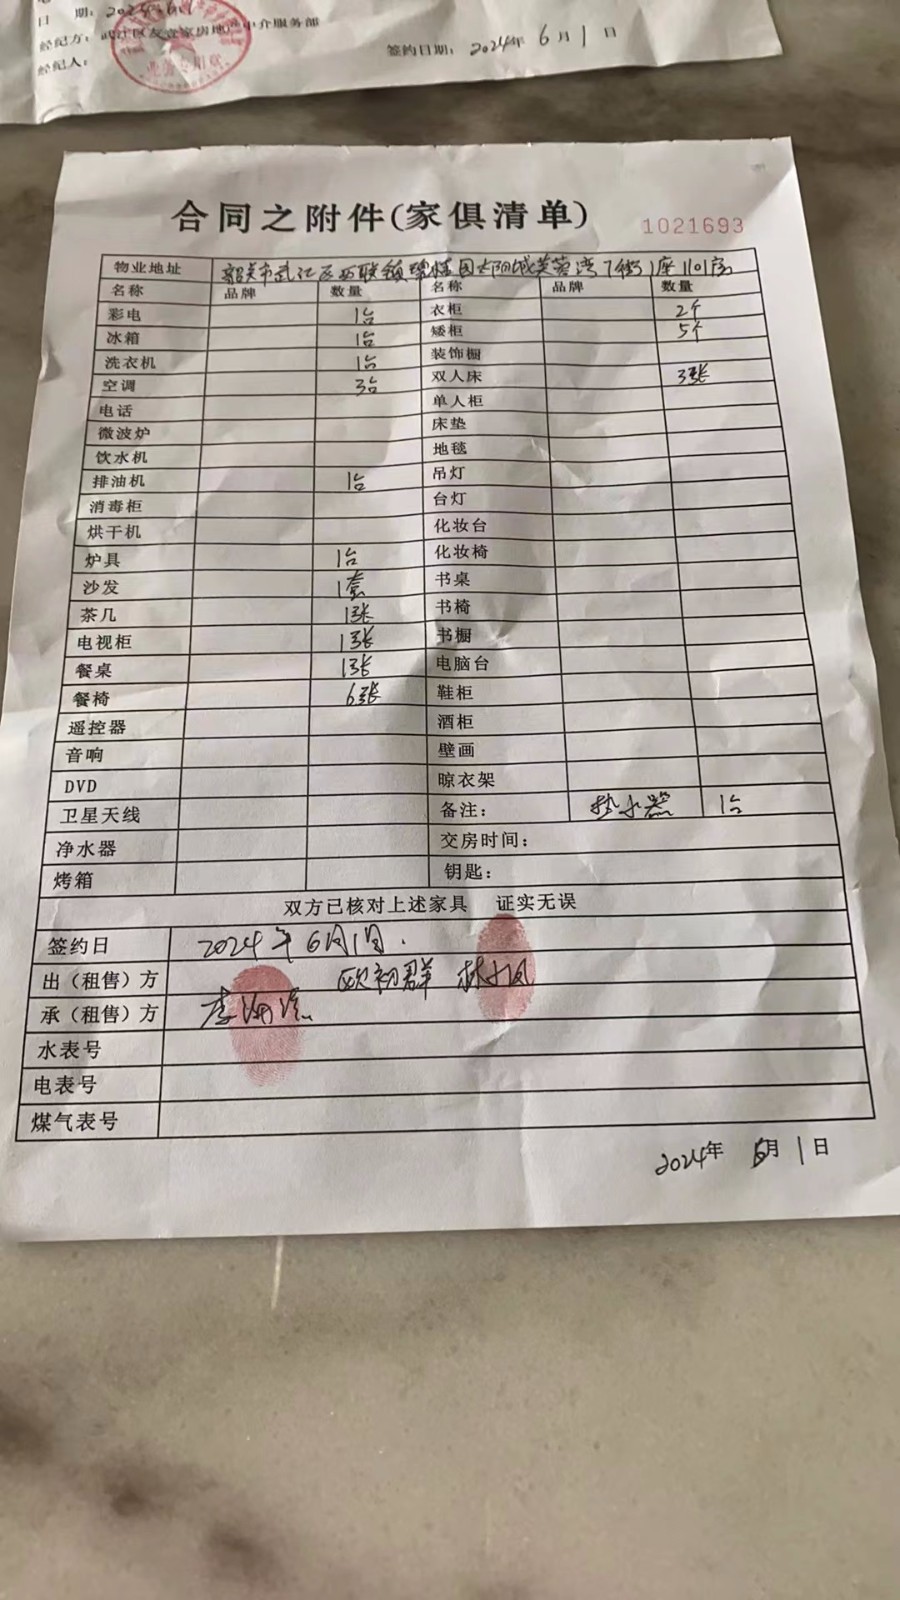 日 期：2024.6.1
经纪方：武江区友壹家房地产中介服务部
业务专用章
经纪人：
签约日期：2024年 6月1日
合同之附件(家俱清单)
1021693
物业地址 韶关市武江区西联镇碧桂园太阳城芙蓉湾7街1座1101房
名称 品牌 数量 名称 品牌 数量
彩电 1台 衣柜 2个
冰箱 1台 矮柜 5个
洗衣机 1台 装饰橱
空调 3台 双人床 3张
电话 单人柜
微波炉 床垫
饮水机 地毯
排油机 1台 吊灯
消毒柜 台灯
烘干机 化妆台
炉具 1台 化妆椅
沙发 1套 书桌
茶几 1张 书椅
电视柜 1张 书橱
餐桌 1张 电脑台
餐椅 6张 鞋柜
遥控器 酒柜
音响 壁画
DVD 晾衣架
卫星天线 备注： 热水器 1台
净水器 交房时间：
烤箱 钥匙：
双方已核对上述家具 证实无误
签约日 2024年6月1日.
出（租售）方 欧初群
承（租售）方 李
水表号
电表号
煤气表号
2024年 6月1日